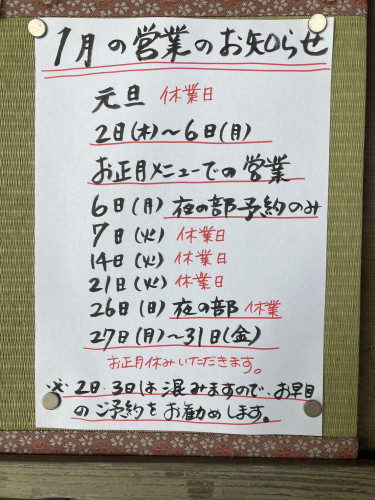 1月の営業のお知らせ
元旦 休業日
2日(木)〜6日(月)
お正月メニューでの営業
6日(月)夜の部予約のみ
7日(火)休業日
14日(火)休業日
21日(火)休業日
26日(日)夜の部 休業
27日(月)〜31日(金)
お正月休みいただきます。
※2日.3日は混みますので、お早目
のご予約をお勧めします。